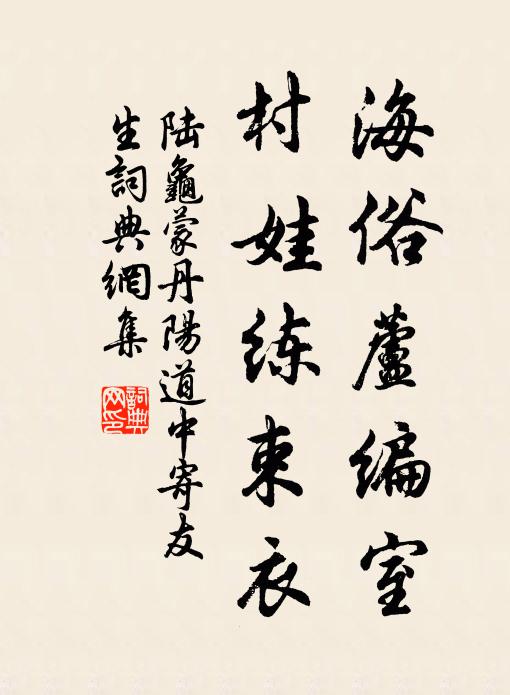 海俗蘆編室
村娃练束衣
陆龜蒙丹陽道中寄友
生詞典網集
詞典网印